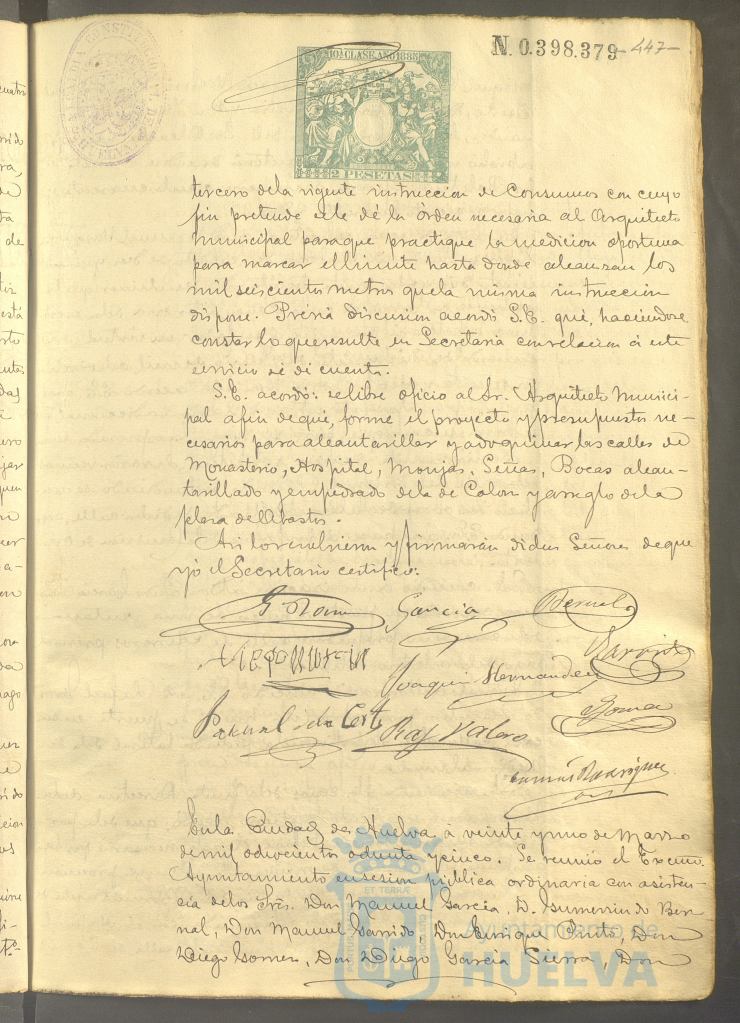 N. 0.398.379 - 447 -
10ª CLASE. AÑO 1885
2 PESETAS
tercero dela vigente instruccion de Consumos con cuyo
fin pretende se le dé la órden necesaria al Arquitecto
municipal paraque practique la medicion oportuna
para marcar el limite hasta donde alcanzan los
mil seiscientos metros quela misma instruccion
dispone. Prévia discusion acordó S.E. que, haciendose
constar lo queresulte en Secretaria conrelacion á este
servicio se dé cuenta.
S.E. acordó: selibre oficio al Sr. Arquitecto Munici-
pal afin deque, forme el proyecto y presupuestos ne-
cesarios para alcantarillar y adoquinar las calles de
Monasterio, Hospital, Monjas, Señas, Bocas alcan-
tarillado y empedrado dela de Colon y arreglo dela
plaza de Abastos.
Asi lo resolvieron y firmarán dichos Señores deque
yo el Secretario certifico:
Garcia Bernal
Garrido
Joaquin Hernandez
Pascual de la Corte Raf Valero Gomez
Rodriguez
En la Ciudad de Huelva, á veinte y uno de Marzo
de mil ochocientos ochenta y cinco. Se reunió el Excmo.
Ayuntamiento en sesion pública ordinaria con asisten-
cia delos Sres. Don Manuel Garcia, D. Gumersindo Ber-
nal, Don Manuel Garrido, Don Enrique Don
Diego Gomez, Don Diego Garcia Sierra, Don
Ayuntamiento de
HUELVA